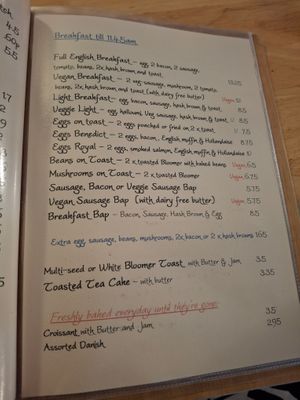 4.5
60p
5.5
17
Breakfast till 11.45am
Full English Breakfast - egg, 2 bacon, 2 sausage,
tomato, beans, 2x hash brown, and toast.
Vegan Breakfast - 2 veg-sausage, mushroom, 2 tomato,
beans, 2x hash brown and toast (with dairy free butter) Vegan 12
Light Breakfast - egg, bacon, sausage, hash brown, & toast. 8.5
Veggie Light - egg, halloumi, Veg sausage, hash brown, & toast V 8.5
Eggs on toast - 2 eggs poached or fried on 2 x toast V 7.5
Eggs Benedict - 2 eggs, bacon, English muffin & Hollandaise 8.75
Eggs Royal - 2 eggs, smoked salmon, English muffin & Hollandaise
Beans on Toast - 2 x toasted Bloomer with baked beans Vegan 6.5
Mushrooms on Toast - 2 x toasted Bloomer Vegan 7.5
Sausage, Bacon or Veggie Sausage Bap 5.75
Vegan Sausage Bap (with dairy free butter) Vegan 5.75
Breakfast Bap - Bacon, Sausage, Hash Brown & Egg 8.5
Extra egg, sausage, beans, mushrooms, 2x bacon, or 2 x hash browns 1.65
Multi-seed or White Bloomer Toast with Butter & Jam 3.5
Toasted Tea Cake - with butter 3.35
Freshly baked everyday until they're gone:
Croissant with Butter and Jam 3.5
Assorted Danish 2.95